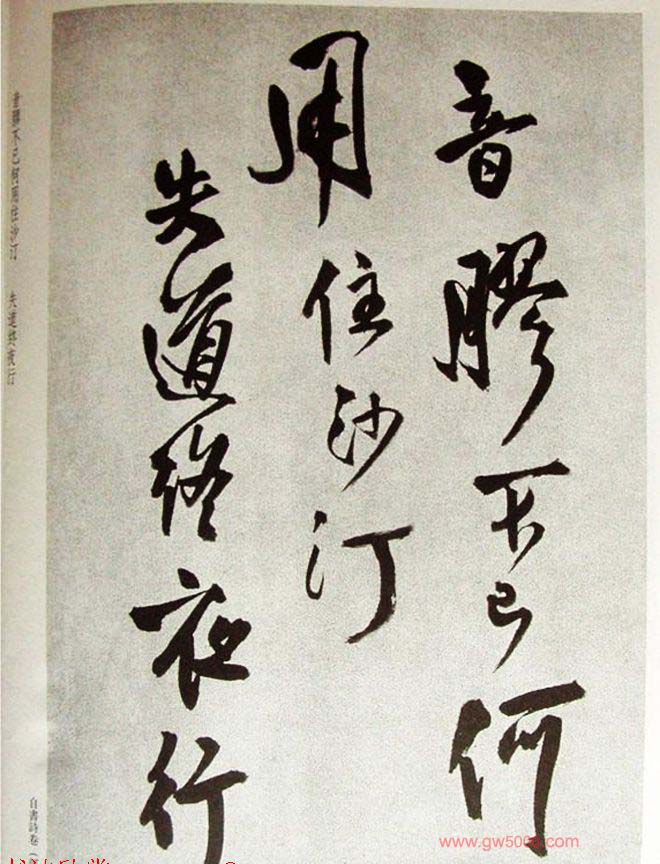 音膠不已何
用住沙汀
失道終夜行
音膠不已何用住沙汀　失道終夜行
自書詩卷
www.gw500o.com